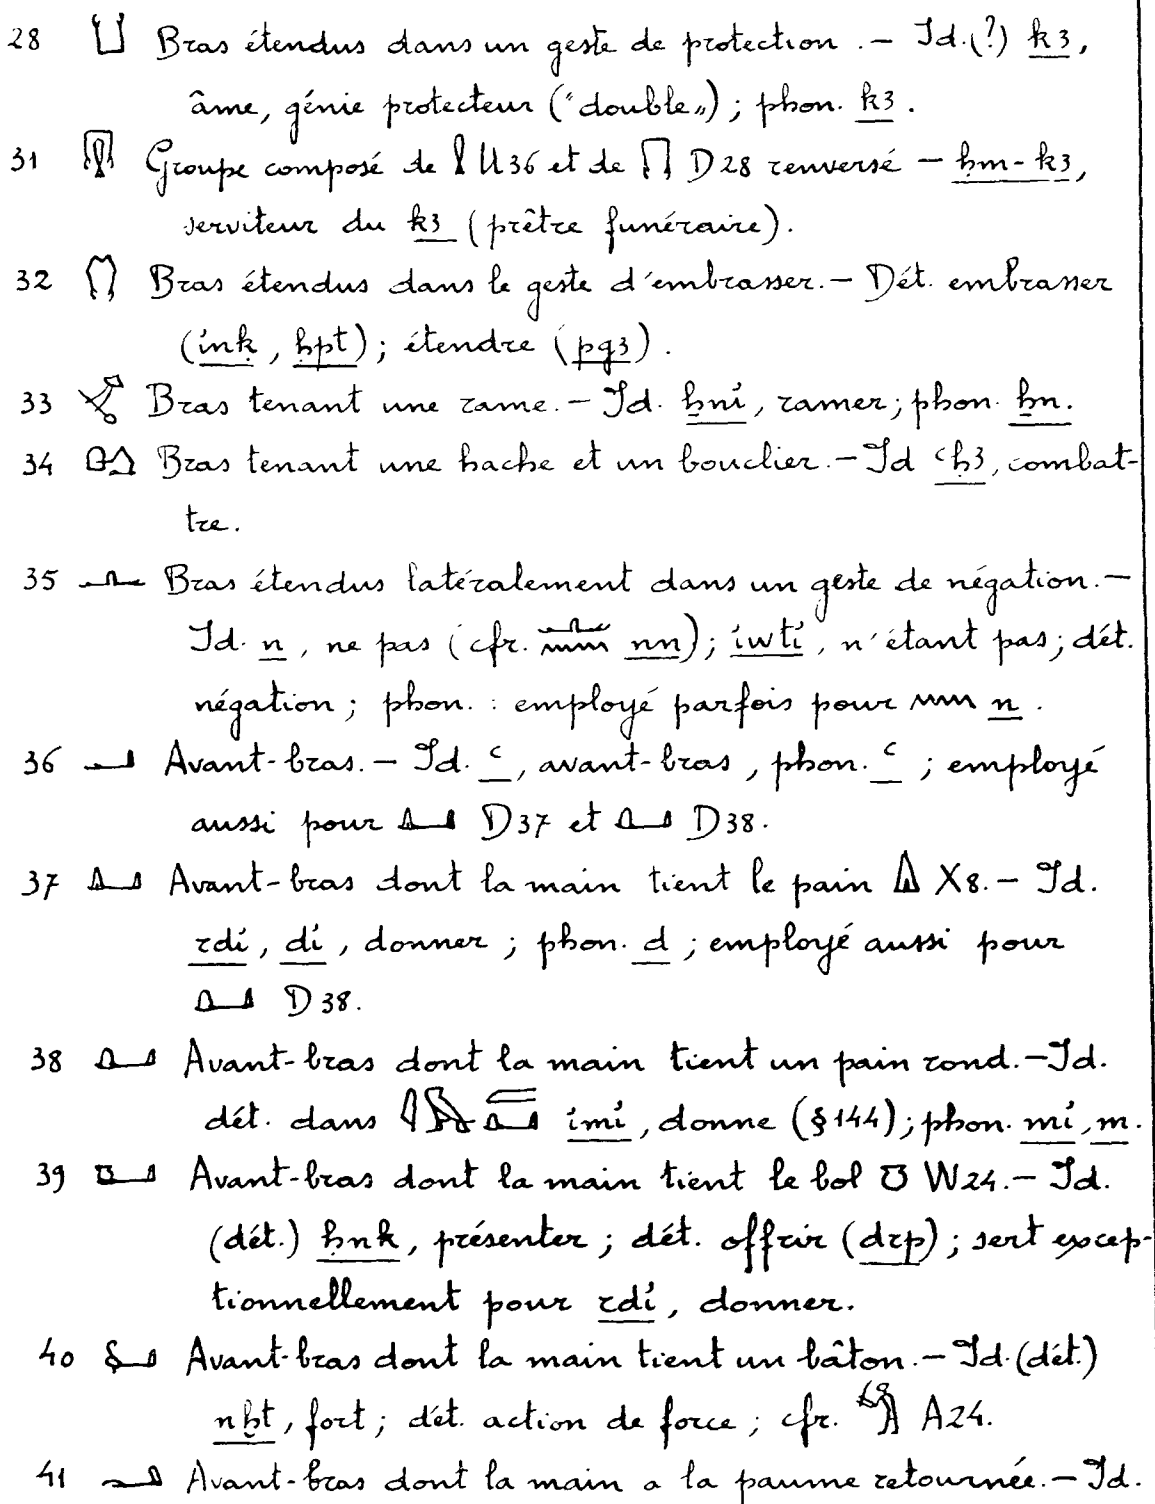 28 𓂓 Bras étendus dans un geste de protection. — Id.(?) k3,
âme, génie protecteur ("double„) ; phon. k3.
31 𓂖 Groupe composé de 𓍛 U36 et de D28 renversé — ḥm-k3,
serviteur du k3 (prêtre funéraire).
32 𓂘 Bras étendus dans le geste d'embrasser. — Dét. embrasser
(ink, ḥpt) ; étendre (pg3).
33 𓂙 Bras tenant une rame. — Id. ẖni, ramer ; phon. ẖn.
34 𓂚 Bras tenant une hache et un bouclier. — Id ꜥḥ3, combat-
tre.
35 𓂜 Bras étendus latéralement dans un geste de négation. —
Id. n, ne pas (cfr. 𓂜𓈖 nn) ; iwti, n'étant pas ; dét.
négation ; phon. : employé parfois pour 𓈖 n.
36 𓂝 Avant-bras. — Id. ꜥ, avant-bras, phon. ꜥ ; employé
aussi pour 𓂞 D37 et 𓂟 D38.
37 𓂞 Avant-bras dont la main tient le pain 𓏙 X8. — Id.
rdi, di, donner ; phon. d ; employé aussi pour
𓂟 D38.
38 𓂟 Avant-bras dont la main tient un pain rond. — Id.
dét. dans 𓇋𓅓𓐝𓂟 imi, donne (§144) ; phon. mi, m.
39 𓂠 Avant-bras dont la main tient le bol 𓏌 W24. — Id.
(dét.) ḥnk, présenter ; dét. offrir (drp) ; sert excep-
tionnellement pour rdi, donner.
40 𓂡 Avant-bras dont la main tient un bâton. — Id. (dét.)
nḫt, fort ; dét. action de force ; cfr. 𓀜 A24.
41 𓂢 Avant-bras dont la main a la paume retournée. — Id.